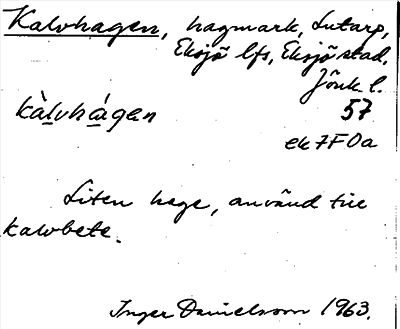 Kalvhagen, hagmark, Lutarp,
Eksjö lfs, Eksjö stad,
Jönk l.
kàlvhágen 57
ek 7F0a
Liten hage, använd till
kalvbete.
Inger Danielsson 1963.